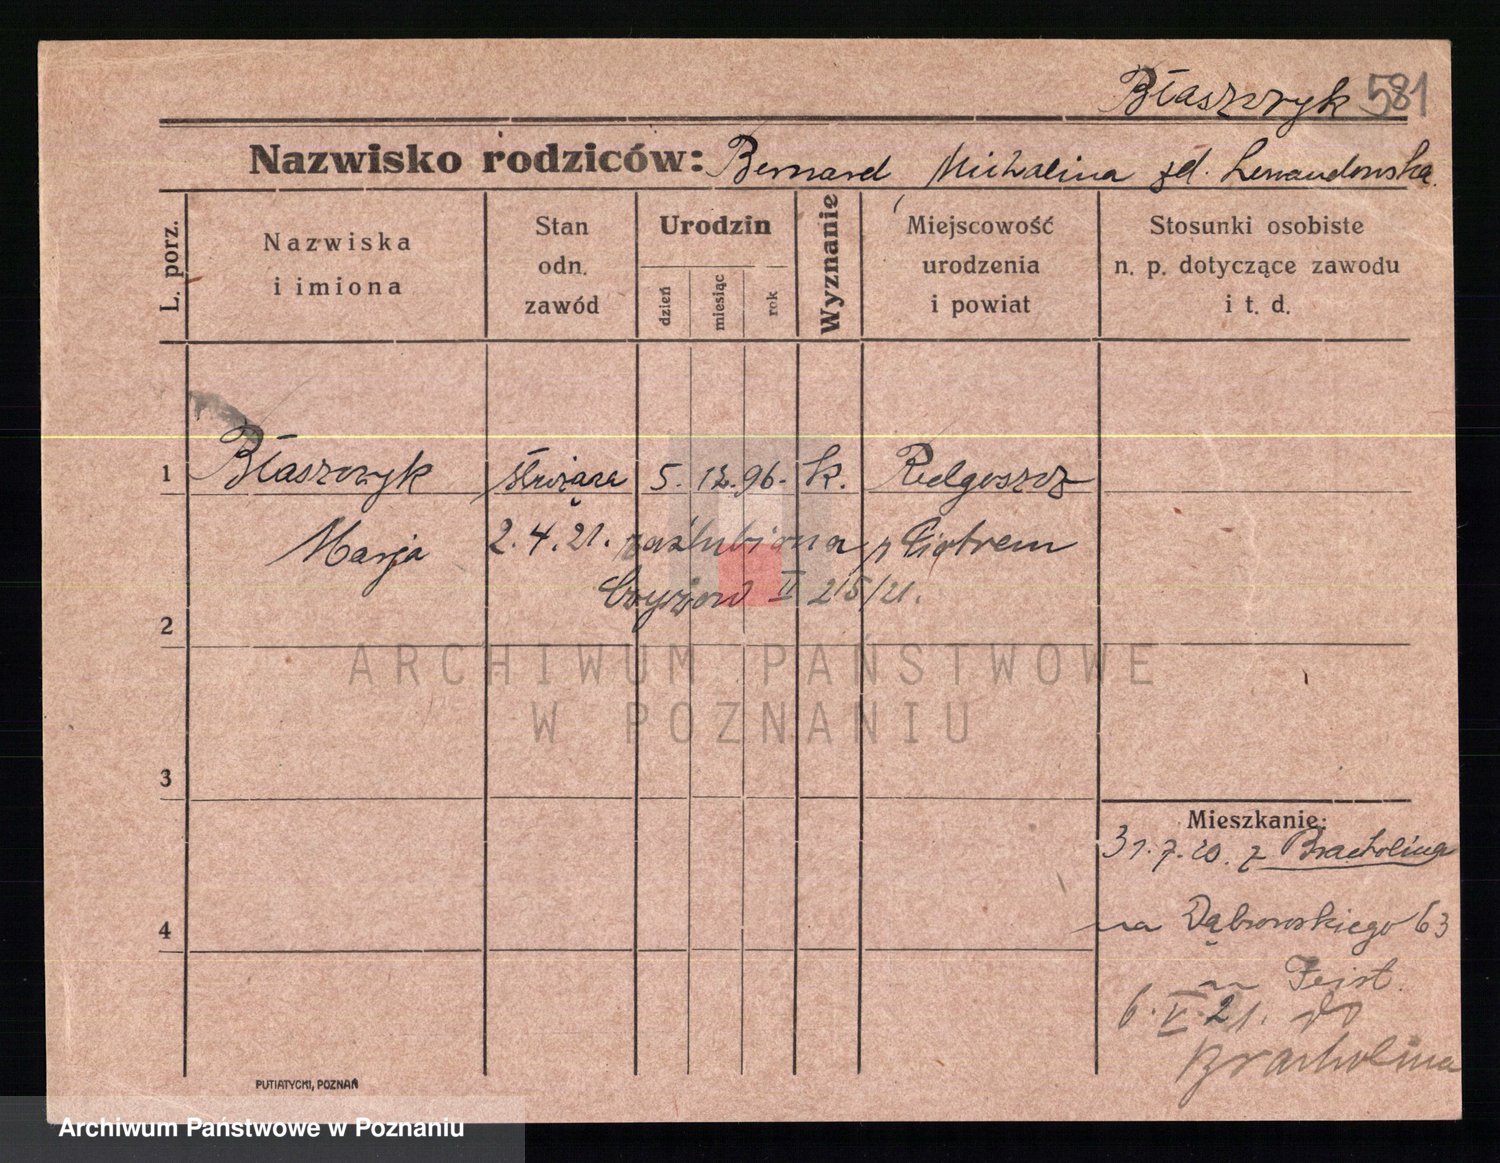 Błaszczyk 581
Nazwisko rodziców: Bernard Michalina zd. Lewandowska.
L. porz.
Nazwiska
i imiona
Stan
odn.
zawód
Urodzin
dzień
miesiąc
rok
Wyznanie
Miejscowość
urodzenia
i powiat
Stosunki osobiste
n. p. dotyczące zawodu
i t. d.
1 Błaszczyk służąca 5. 12. 96. k. Redgoszcz
Marja 2.4.21. zaślubiona z Piotrem
II 2/5/21.
2
ARCHIWUM PAŃSTWOWE
W POZNANIU
3
Mieszkanie:
31.7.20. z Bracholina
4
na Dąbrowskiego 63
u Feist.
6.V.21. do
Bracholina
PUTIATYCKI, POZNAŃ
Archiwum Państwowe w Poznaniu